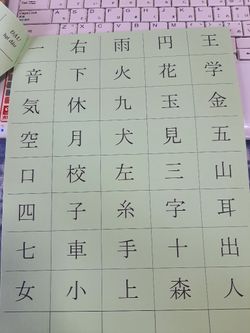 一 右 雨 円 王
音 下 火 花 学
気 休 九 玉 金
空 月 犬 見 五
口 校 左 三 山
四 子 糸 字 耳
七 車 手 十 出
女 小 上 森 人